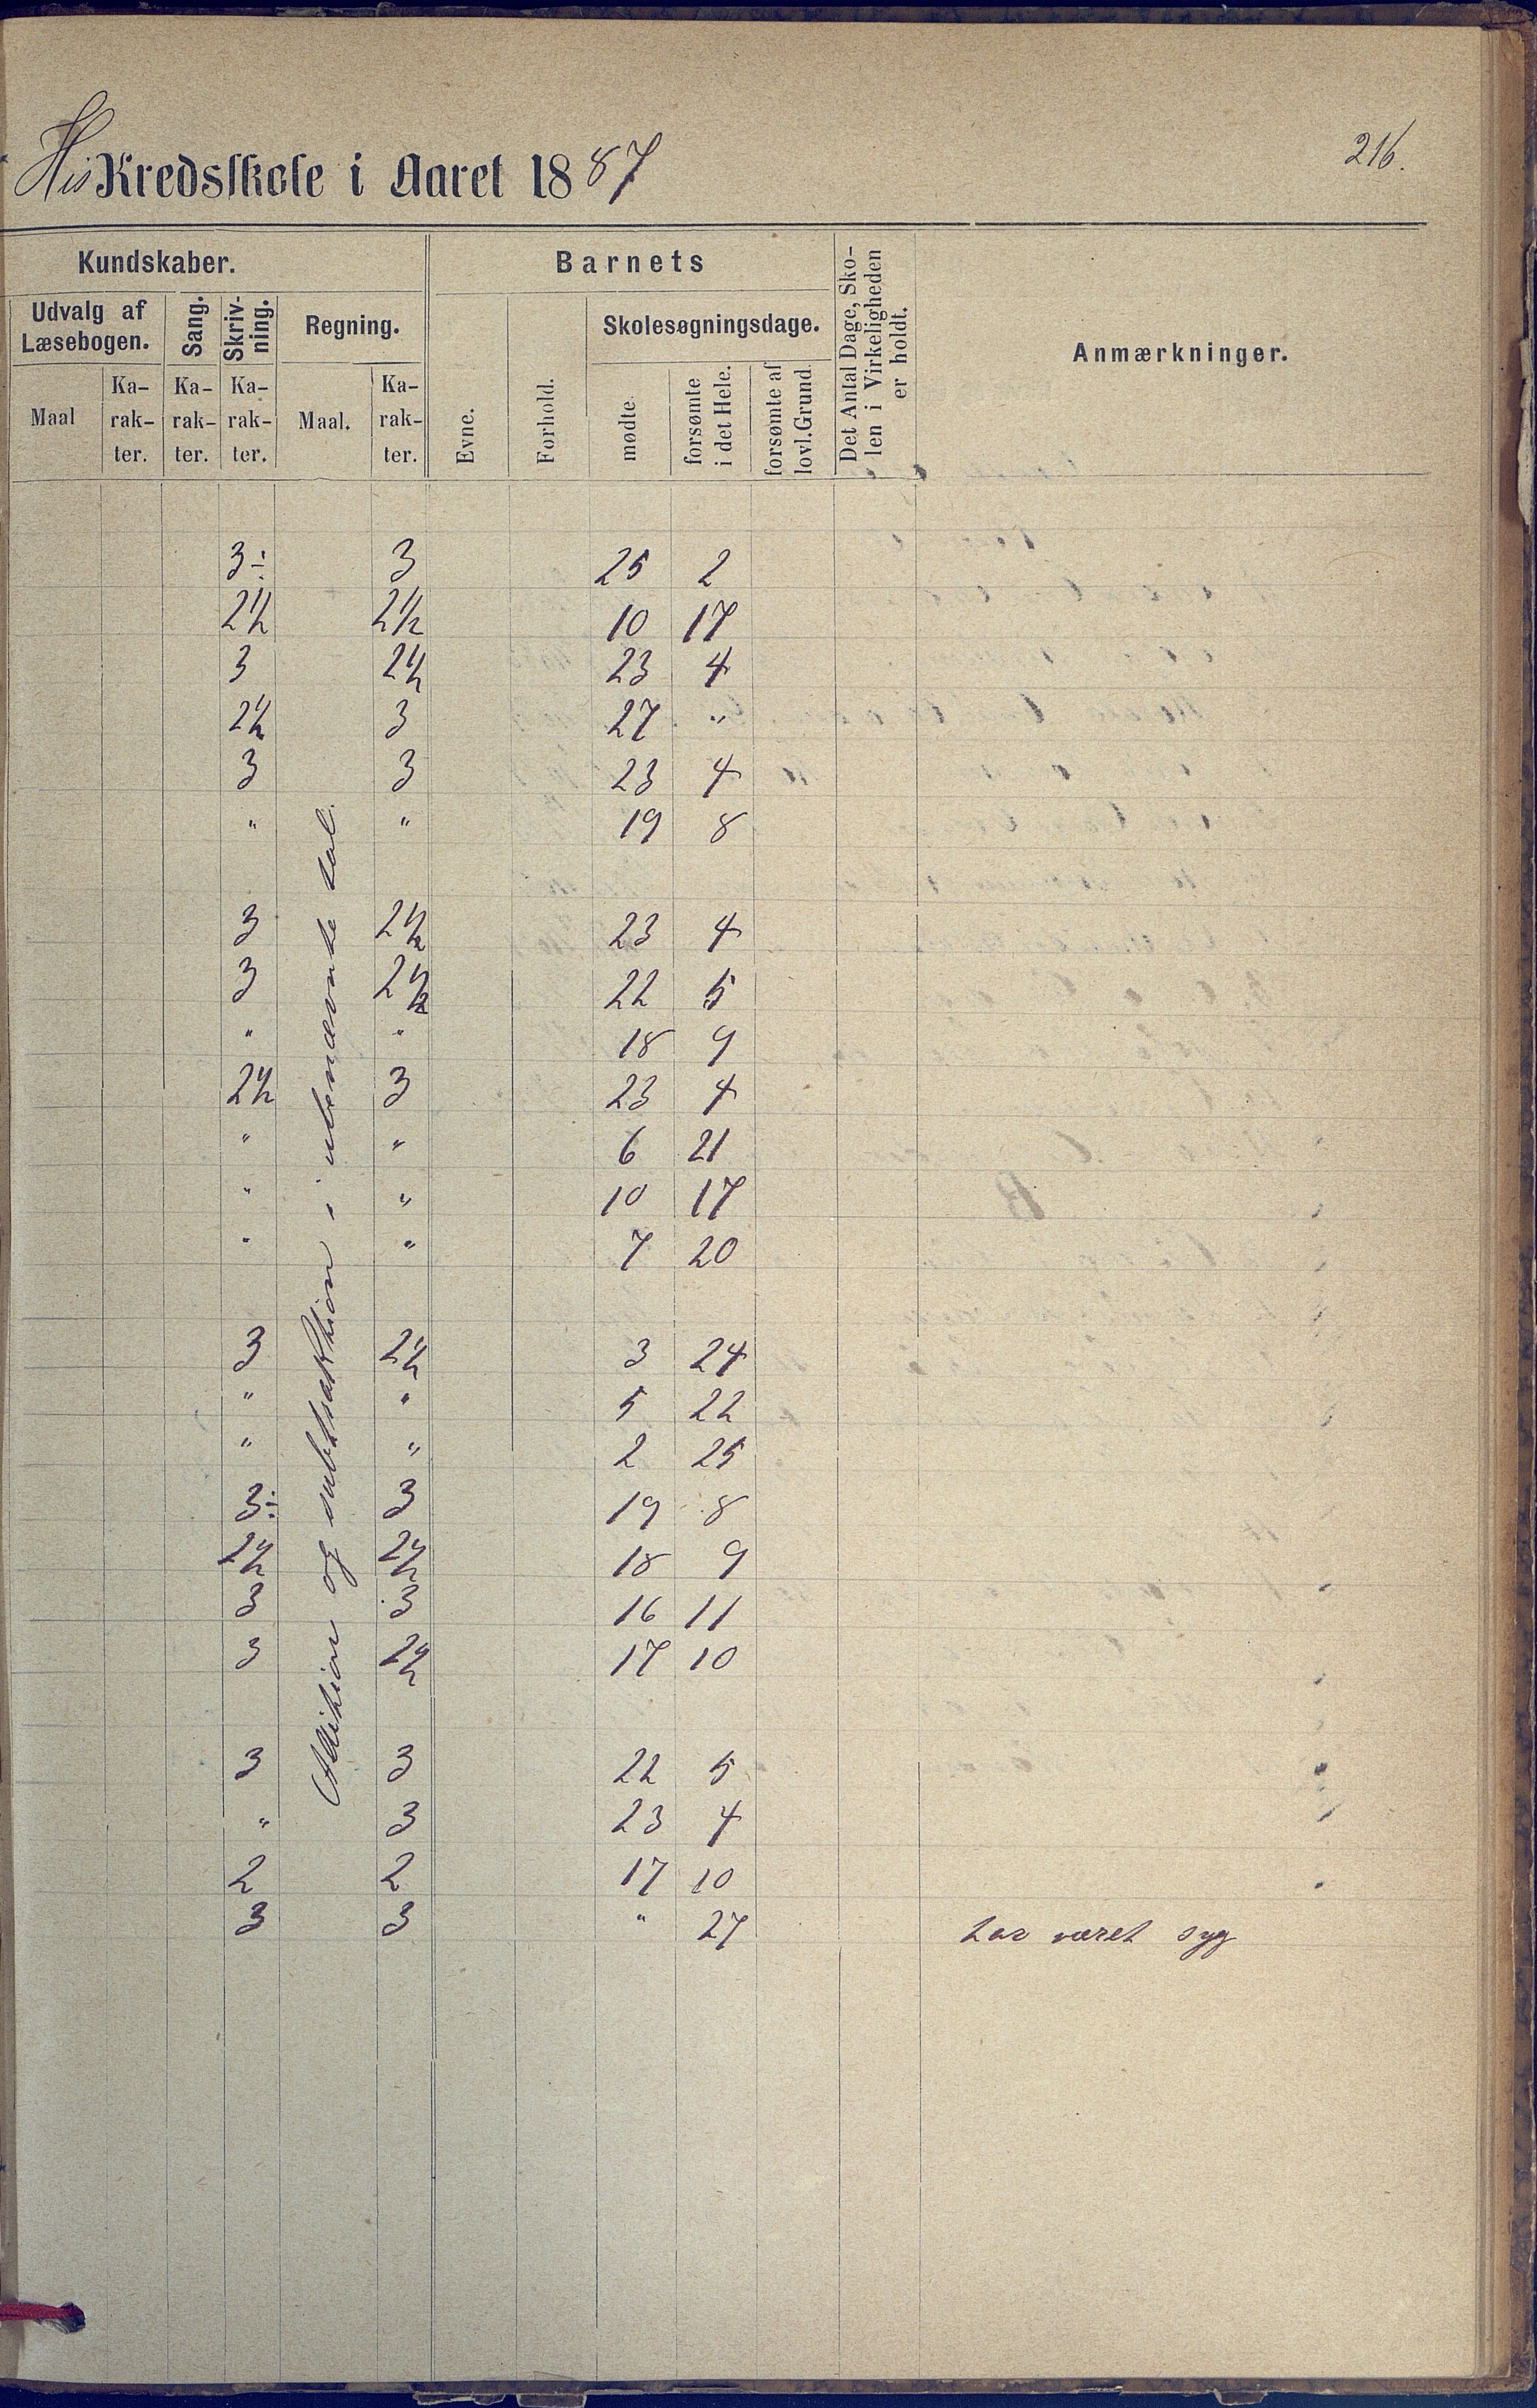 216.
His Kredsskole i Aaret 1887
Kundskaber. Barnets Det Antal Dage, Sko-len i Virkeligheden er holdt. Anmærkninger.
Udvalg af Læsebogen. Sang. Skriv-ning. Regning. Evne. Forhold. Skolesøgningsdage.
Maal Ka-rak-ter. Ka-rak-ter. Ka-rak-ter. Maal. Ka-rak-ter. mødte. forsømte i det Hele. forsømte af lovl. Grund.
Addition og subtraktion i ubenævnte tal.
3÷ 3 25 2
2½ 2½ 10 17
3 2½ 23 4
2½ 3 27 "
3 3 23 4
" " 19 8
3 2½ 23 4
3 2½ 22 5
" " 18 9
2½ 3 23 4
" " 6 21
" " 10 17
" " 7 20
3 2½ 3 24
" " 5 22
" " 2 25
3÷ 3 19 8
2½ 2½ 18 9
3 3 16 11
3 2½ 17 10
3 3 22 5
" 3 23 4
2 2 17 10
3 3 " 27 har været syg